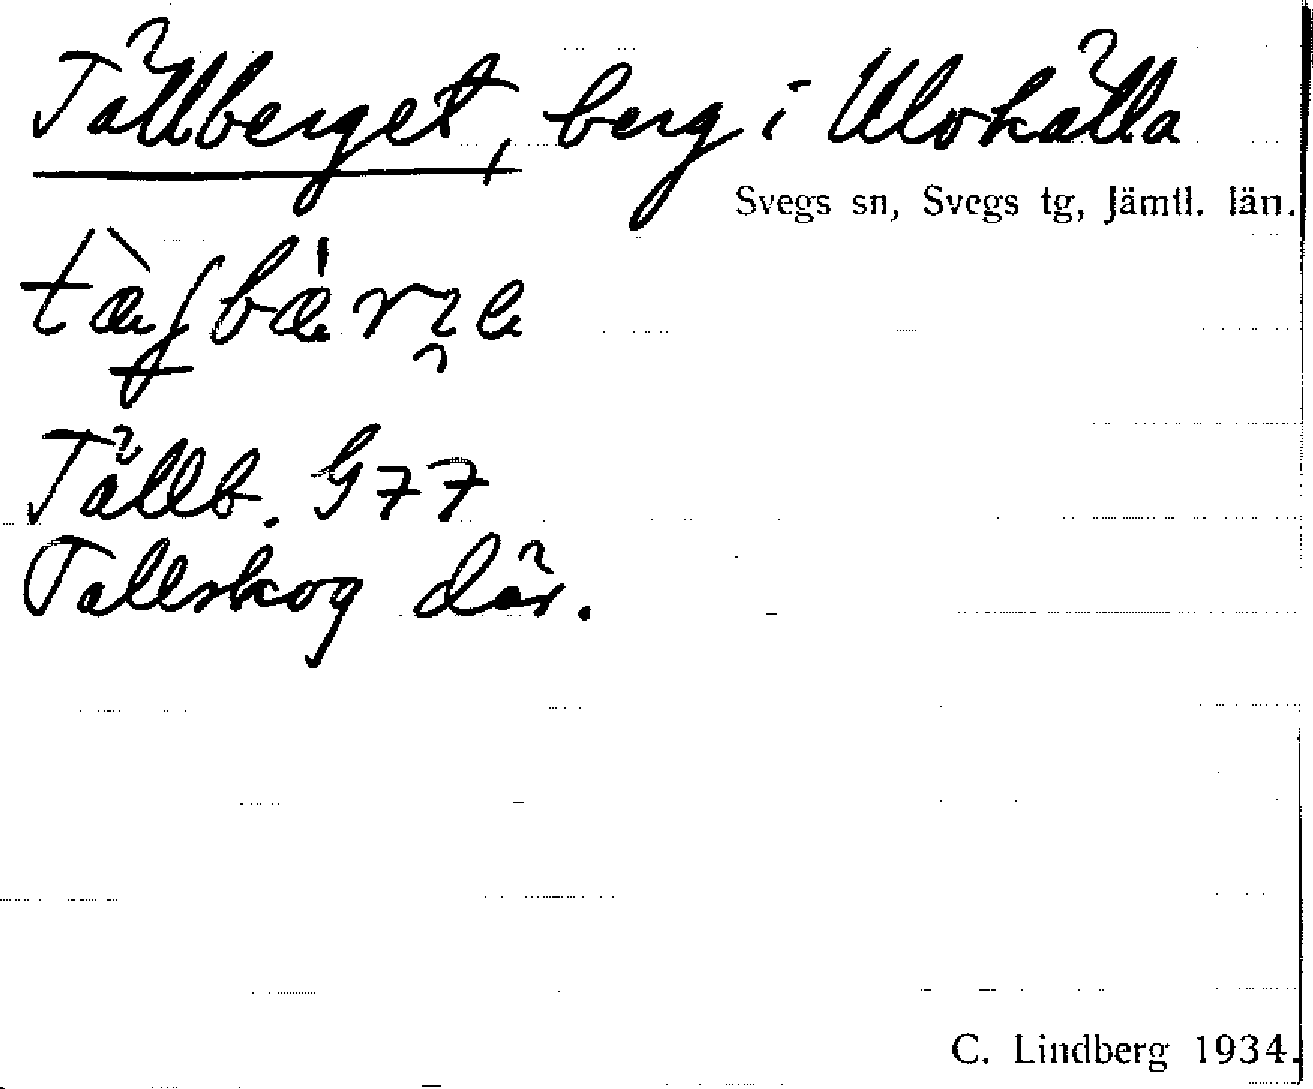 Tällberget, berg i Ulvkälla
Svegs sn, Svegs tg, Jämtl. län.
Tällb. G77
Tallskog där.
C. Lindberg 1934.